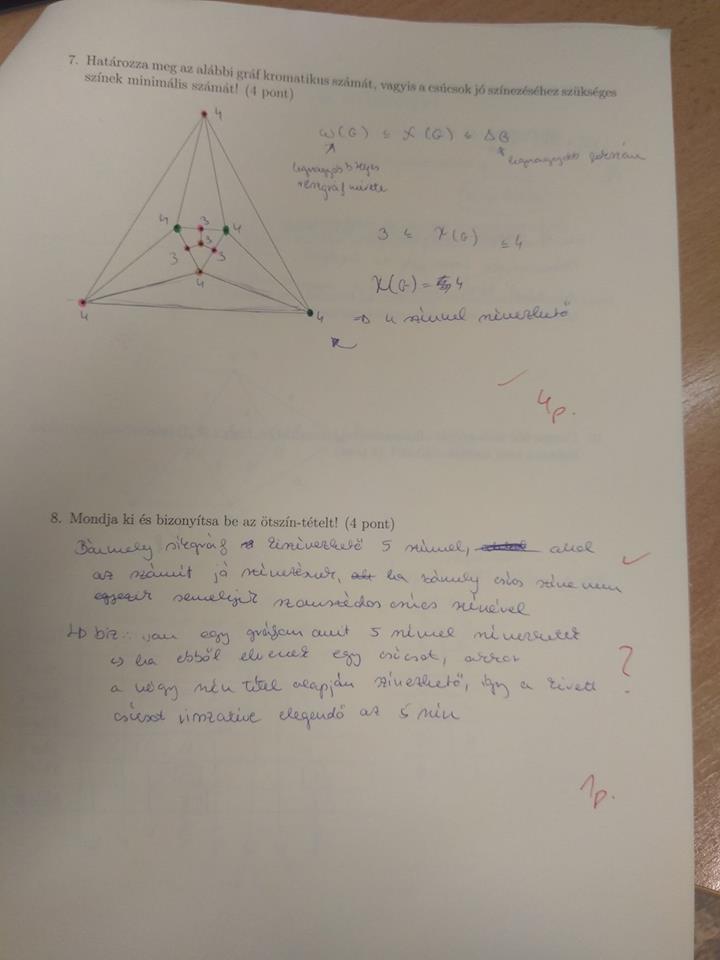 7. Határozza meg az alábbi gráf kromatikus számát, vagyis a csúcsok jó színezéséhez szükséges
színek minimális számát! (4 pont)
4
ω(G) ≤ χ(G) ≤ ΔG
legnagyobb teljes
részgráf mérete
legnagyobb fokszám
4 3 4
3 3 3
4
3 ≤ χ(G) ≤ 4
χ(G) = 4
4 4
⇒ 4 színnel színezhető
4p.
8. Mondja ki és bizonyítsa be az ötszín-tételt! (4 pont)
Bármely síkgráf kiszínezhető 5 színnel, ahol
az számít jó színezésnek, ha bármely csúcs színe nem
egyezik semelyik szomszédos csúcs színével
biz.: van egy gráfom amit 5 színnel színezhetek
és ha ebből elveszek egy csúcsot, akkor
a négy szín tétel alapján színezhető, így a kivett
csúcsot visszatéve elegendő az 5 szín
?
1p.